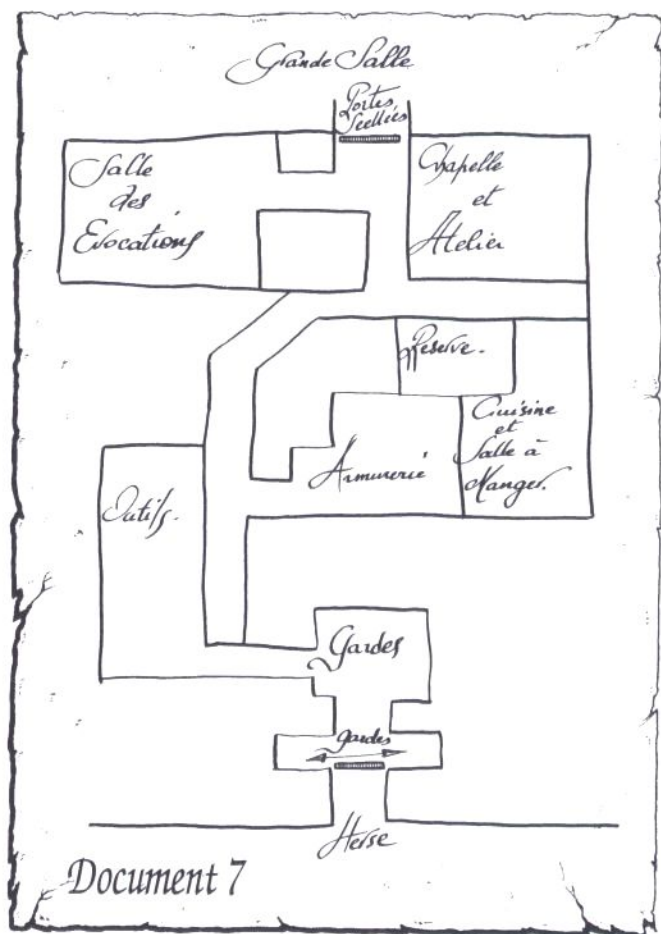 Grande Salle
Portes
Scellées
Salle
des
Evocations
Chapelle
et
Atelier
Réserve.
Cuisine
et
Salle à
Manger.
Armurerie
Outils.
Gardes
gardes
Herse
Document 7